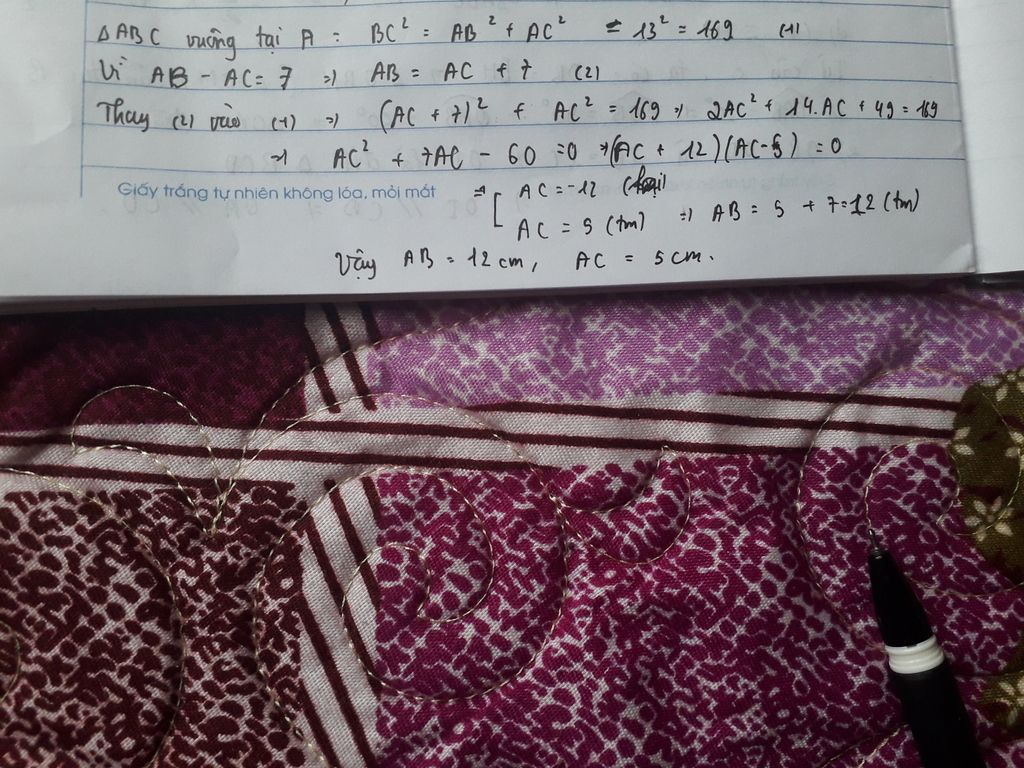 ΔABC vuông tại A : BC² = AB² + AC² = 13² = 169 (1)
Vì AB - AC = 7 => AB = AC + 7 (2)
Thay (2) vào (1) => (AC + 7)² + AC² = 169 => 2AC² + 14.AC + 49 = 169
=> AC² + 7AC - 60 = 0 => (AC + 12)(AC - 5) = 0
Giấy trắng tự nhiên không lóa, mỏi mắt
=> [ AC = -12 (loại)
AC = 5 (tm) => AB = 5 + 7 = 12 (tm)
Vậy AB = 12 cm, AC = 5 cm.